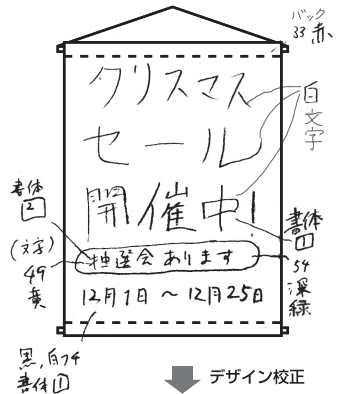 バック
33 赤
クリスマス
セール
開催中!
白文字
書体
2
(文字)
49
黄
抽選会あります
書体
1
54
深
緑
12月1日 ~ 12月25日
黒,白フチ
書体 1
デザイン校正